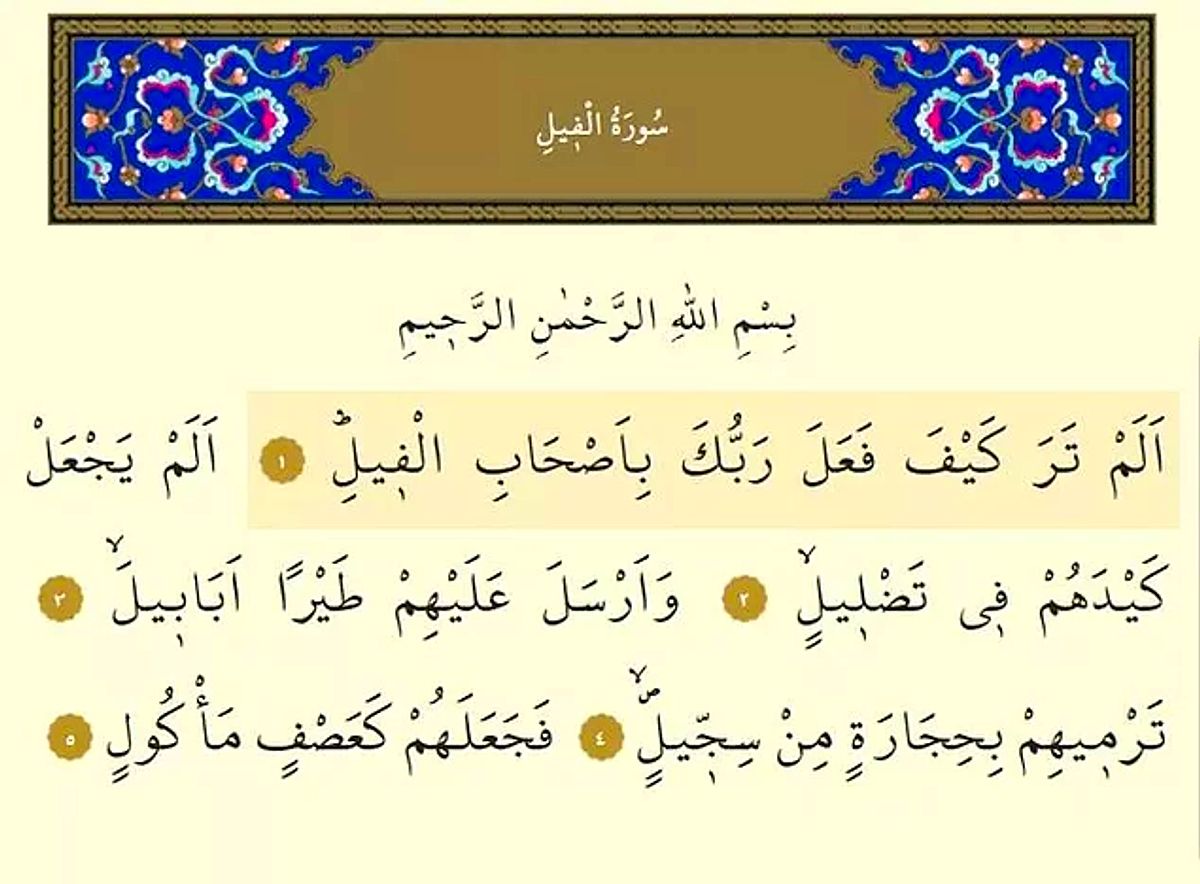 سُورَةُ الْفٖيلِ
بِسْمِ اللّٰهِ الرَّحْمٰنِ الرَّحٖيمِ
اَلَمْ تَرَ كَيْفَ فَعَلَ رَبُّكَ بِاَصْحَابِ الْفٖيلِؕ ١ اَلَمْ يَجْعَلْ
كَيْدَهُمْ فٖى تَضْلٖيلٍۙ ٢ وَاَرْسَلَ عَلَيْهِمْ طَيْرًا اَبَابٖيلَۙ ٣
تَرْمٖيهِمْ بِحِجَارَةٍ مِنْ سِجّٖيلٍۙࣕ ٤ فَجَعَلَهُمْ كَعَصْفٍ مَأْكُولٍ ٥